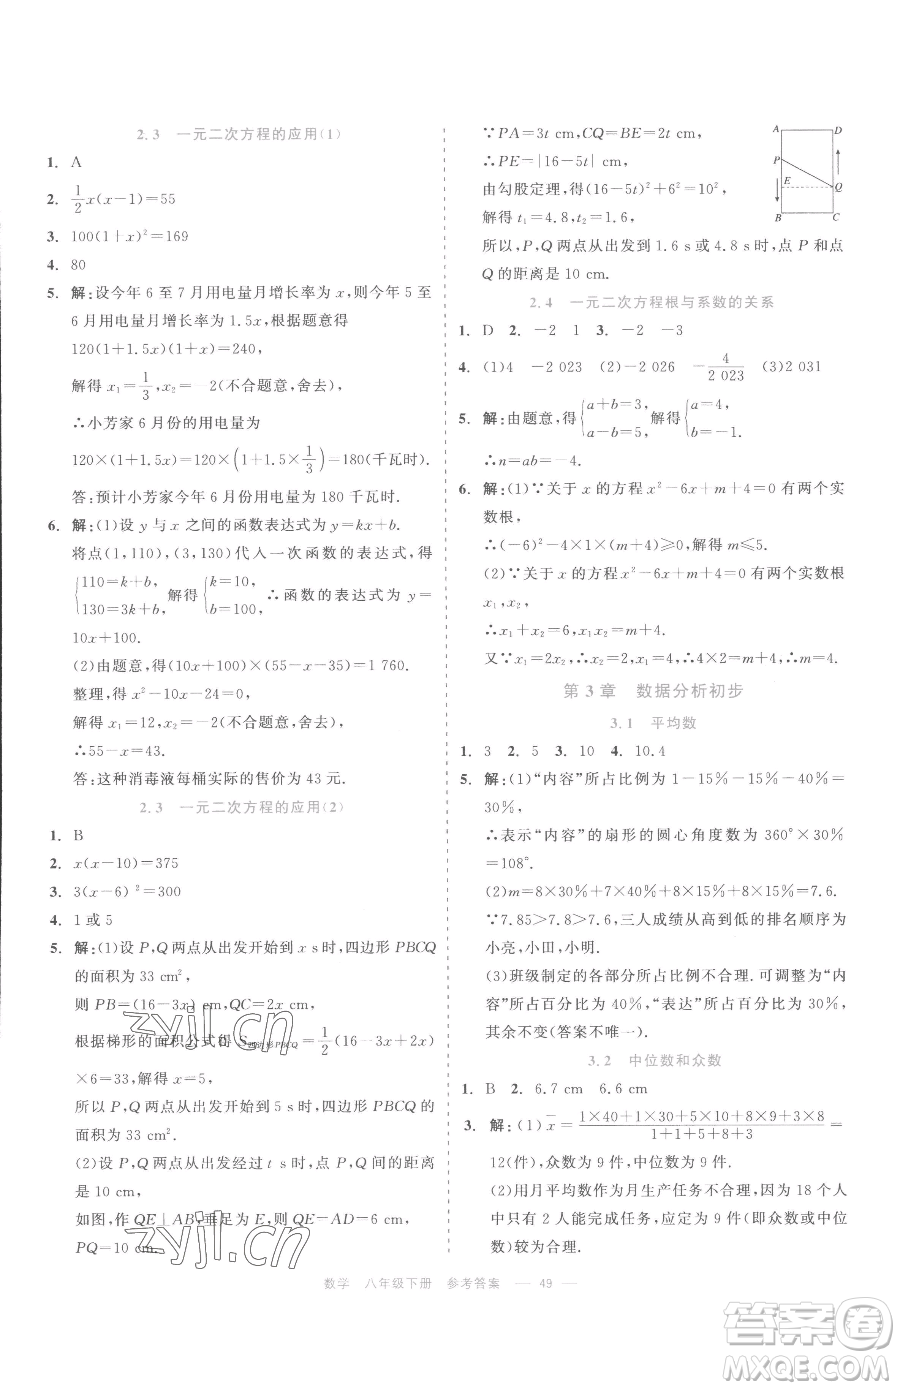 2.3 一元二次方程的应用(1)
1. A
2. 1/2x(x-1)=55
3. 100(1+x)²=169
4. 80
5. 解:设今年 6 至 7 月用电量月增长率为 x,则今年 5 至
6 月用电量月增长率为 1.5x,根据题意得
120(1+1.5x)(1+x)=240,
解得 x₁=1/3,x₂=-2(不合题意,舍去),
∴小芳家 6 月份的用电量为
120×(1+1.5x)=120×(1+1.5×1/3)=180(千瓦时).
答:预计小芳家今年 6 月份的用电量为 180 千瓦时.
6. 解:(1)设 y 与 x 之间的函数表达式为 y=kx+b.
将点(1,110),(3,130)代入一次函数的表达式,得
{110=k+b, 130=3k+b, 解得{k=10, b=100, ∴函数的表达式为 y=
10x+100.
(2)由题意,得(10x+100)×(55-x-35)=1 760.
整理,得 x²-10x-24=0.
解得 x₁=12,x₂=-2(不合题意,舍去).
∴55-x=43.
答:这种消毒液每桶实际的售价为 43 元.
2.3 一元二次方程的应用(2)
1. B
2. x(x-10)=375
3. 3(x-6)²=300
4. 1 或 5
5. 解:(1)设 P,Q 两点从出发开始到 x s时,四边形 PBCQ
的面积为 33 cm²,
则 PB=(16-3x) cm,QC=2x cm,
根据梯形的面积公式得 S四边形PBCQ=1/2(16-3x+2x)
×6=33,解得 x=5,
所以 P,Q 两点从出发到 5 s时,四边形 PBCQ 的
面积为 33 cm².
(2)设 P,Q 两点从出发经过 t s时,点 P,Q 的距离
是 10 cm,
如图,作 QE⊥AB,垂足为 E,则 QE=AD=6 cm,
PQ=10 cm,
∵PA=3t cm,CQ=BE=2t cm,
∴PE=|16-5t| cm,
由勾股定理,得(16-5t)²+6²=10²,
解得 t₁=4.8,t₂=1.6,
所以,P,Q 两点从出发到 1.6 s或 4.8 s时,点 P 和点
Q 的距离是 10 cm.
A D
P
E Q
B C
2.4 一元二次方程根与系数的关系
1. D 2. -2 1 3. -2 -3
4. (1)4 -2 023 (2)-2 026 -4/2 023 (3)2 031
5. 解:由题意,得{a+b=3, a-b=5,解得{a=4, b=-1.
∴n=ab=-4.
6. 解:(1)∵关于 x 的方程 x²-6x+m+4=0 有两个实
数根,
∴(-6)²-4×1×(m+4)≥0,解得 m≤5.
(2)∵关于 x 的方程 x²-6x+m+4=0 有两个实数根
x₁,x₂,
∴x₁+x₂=6,x₁x₂=m+4.
又∵x₁=2x₂,∴x₂=2,x₁=4,∴4×2=m+4,∴m=4.
第 3 章 数据分析初步
3.1 平均数
1. 3 2. 5 3. 10 4. 10.4
5. 解:(1)“内容”所占比例为 1-15%-15%-40%=
30%,
∴表示“内容”的扇形的圆心角度数为 360°×30%
=108°.
(2)m=8×30%+7×40%+8×15%+8×15%=7.6.
∵7.85>7.8>7.6,三人成绩从高到低的排名顺序为
小亮,小田,小明.
(3)班级制定的各部分所占比例不合理.可调整为:“内
容”所占百分比为 40%,“表达”所占百分比为 30%,
其余不变(答案不唯一).
3.2 中位数和众数
1. B 2. 6.7 cm 6.6 cm
3. 解:(1)x̄=(1×40+1×30+5×10+8×9+3×8)/(1+1+5+8+3)=
12(件),众数为 9 件,中位数为 9 件.
(2)用月平均数作为月生产任务不合理,因为 18 个人
中只有 2 人能完成任务,应定为 9 件(即众数或中位
数)较为合理.
数学 八年级下册 参考答案 — 49 —
zyjl.cn
zyjl.cn
答案圈
MXQE.COM